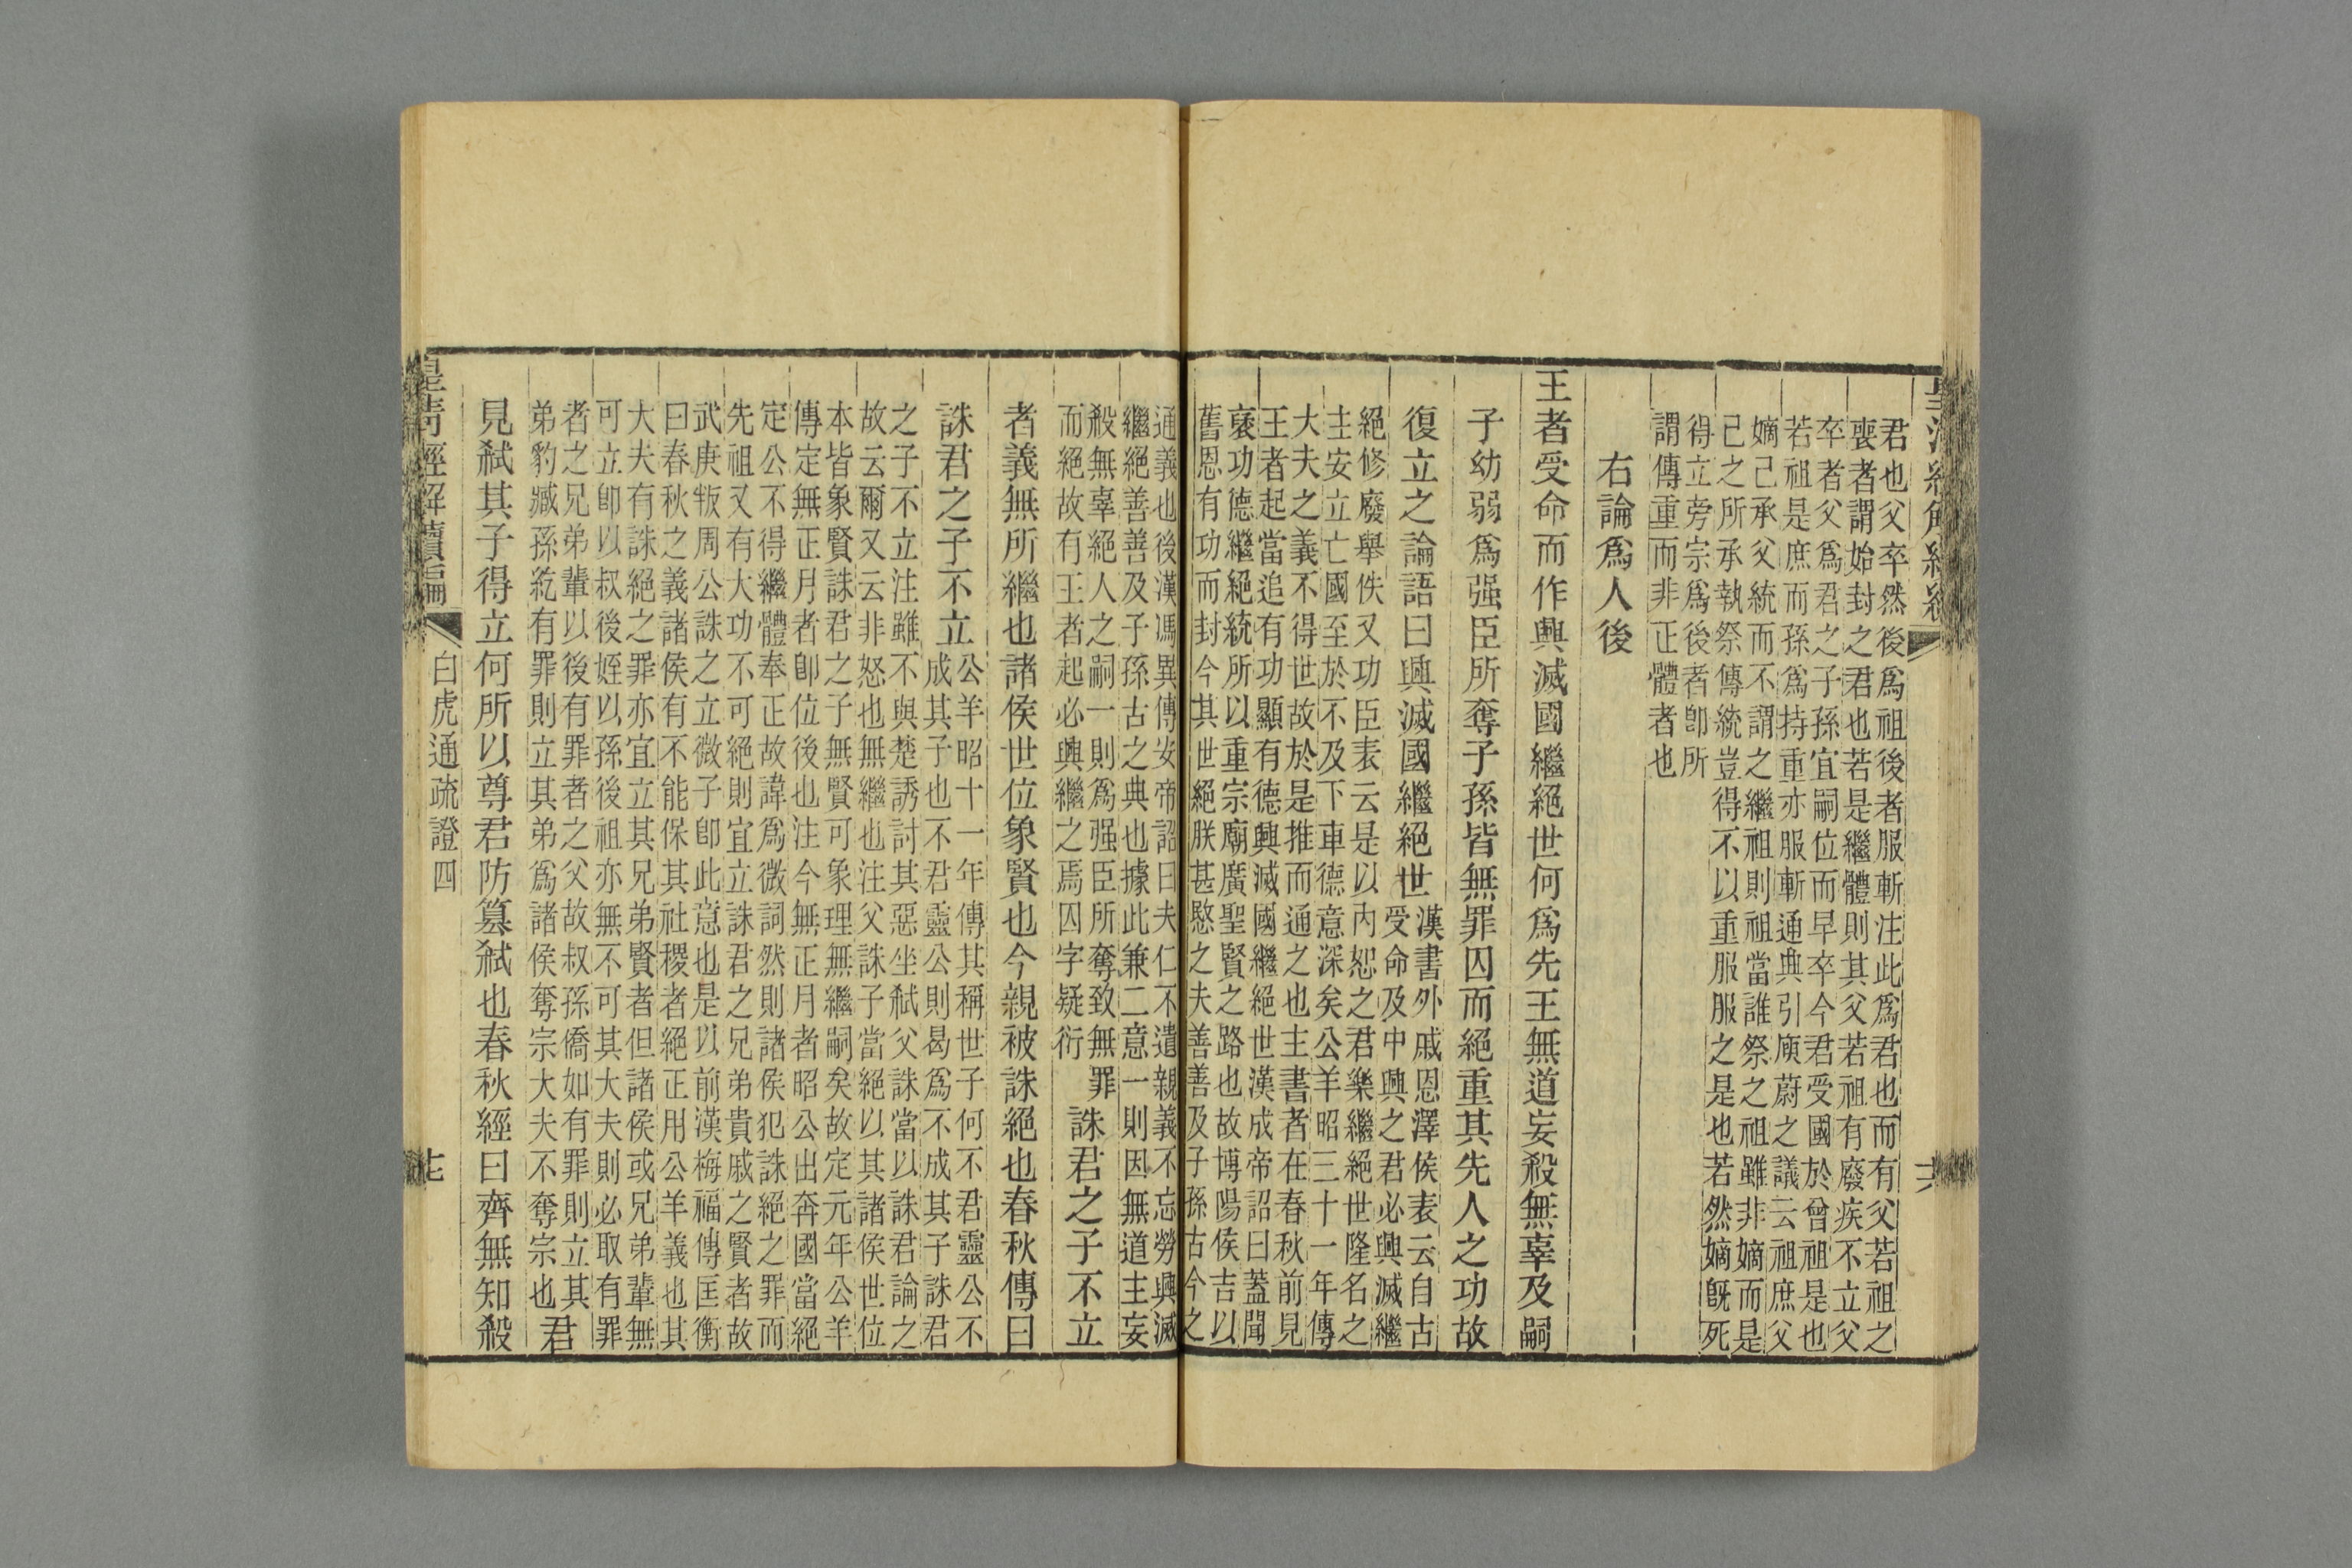 君也父卒然後爲祖後者服斬注此爲君也而有父若祖之
喪者謂始封之君也若是繼體則其父若祖有廢疾不立父
卒者父爲君之子孫宜嗣位而早卒今君受國於曾祖是也
若祖是庶而孫爲持重亦服斬通典引庾蔚之議云祖庶父
嫡己承父統而不謂之繼祖則祖當誰祭之祖雖非嫡而是
己之所承執祭傳統豈得不以重服服之是也若然嫡旣死
得立旁宗爲後者卽所
謂傳重而非正體者也
右論爲人後
王者受命而作興滅國繼絕世何爲先王無道妄殺無辜及嗣
子幼弱爲强臣所奪子孫皆無罪囚而絕重其先人之功故
復立之論語曰興滅國繼絕世
漢書外戚恩澤侯表云自古
受命及中興之君必興滅繼
絕修廢舉佚又功臣表云是以內恕之君樂繼絕世隆名之
主安立亡國至於不及下車德意深矣公羊昭三十一年傳
大夫之義不得世故於是推而通之也主書者在春秋前見
王者起當追有功顯有德興滅國繼絕世漢成帝詔曰蓋聞
襃功德繼絕統所以重宗廟廣聖賢之路也故博陽侯吉以
舊恩有功而封今其世絕朕甚愍之夫善善及子孫古今之
通義也後漢馮異傳安帝詔曰夫仁不遺親義不忘勞興滅
繼絕善善及子孫古之典也據此兼二意一則因無道主妄
殺無辜絕人之嗣一則爲强臣所奪致無罪
而絕故有王者起必興繼之焉囚字疑衍
誅君之子不立
者義無所繼也諸侯世位象賢也今親被誅絕也春秋傳曰
誅君之子不立
公羊昭十一年傳其稱世子何不君靈公不
成其子也不君靈公則曷爲不成其子誅君
之子不立注雖不與楚誘討其惡坐弒父誅當以誅君論之
故云爾又云非怒也無繼也注父誅子當絕以其諸侯世位
本皆象賢誅君之子無賢可象理無繼嗣矣故定元年公羊
傳定無正月者卽位後也注今無正月者昭公出奔國當絕
定公不得繼體奉正故諱爲微詞然則諸侯犯誅絕之罪而
先祖又有大功不可絕則宜立誅君之兄弟貴戚之賢者故
武庚叛周公誅之立微子卽此意也是以前漢梅福傳匡衡
曰春秋之義諸侯有不能保其社稷者絕正用公羊義也其
大夫有誅絕之罪亦宜立其兄弟賢者但諸侯或兄弟輩無
可立卽以叔後姪以孫後祖亦無不可其大夫則必取有罪
者之兄弟輩以後有罪者之父故叔孫僑如有罪則立其
弟豹臧孫紇有罪則立其弟爲諸侯奪宗大夫不奪宗也
君
見弒其子得立何所以尊君防篡弒也春秋經曰齊無知殺
皇清經解續編
白虎通疏證四